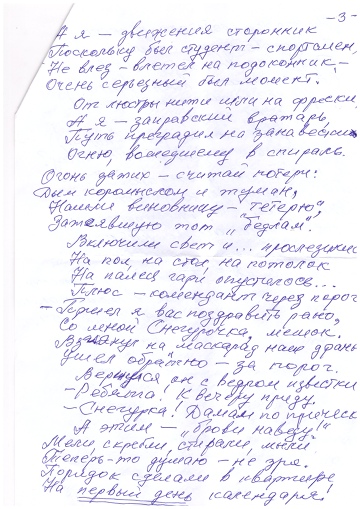 -3-
А я – движения сторонник
Поскольку был студент – спортсмен,
Не влез – влетел на подоконник, –
Очень серьёзный был момент.
От люстры нити шли на фрески,
А я – заправский вратарь,
Путь преградил на занавески
Огню, вошедшему в спираль.
Огонь затих – считай потери:
Дым коромыслом и туман,
Нашли виновницу – "тетерю",
Затеявшую тот "бедлам".
Включили свет и... прослезились
На пол, на стол, на потолок
На палься гари опустилось...
Плюс – комендант через порог
– Пришел я вас поздравить рано,
Со мной Снегурочка, мешок.
Взглянул на маскарад наш
Ушел обратно – за порог.
Вернулся он с ведром известки
– Ребята! К вечеру приду.
– Снегурка! Дамам по прическе
А этим – "брови наведу!"
Мели, скребли, стирали, мыли
Теперь-то думаю – не зря.
Порядок сделали в квартире
На первый день календаря!